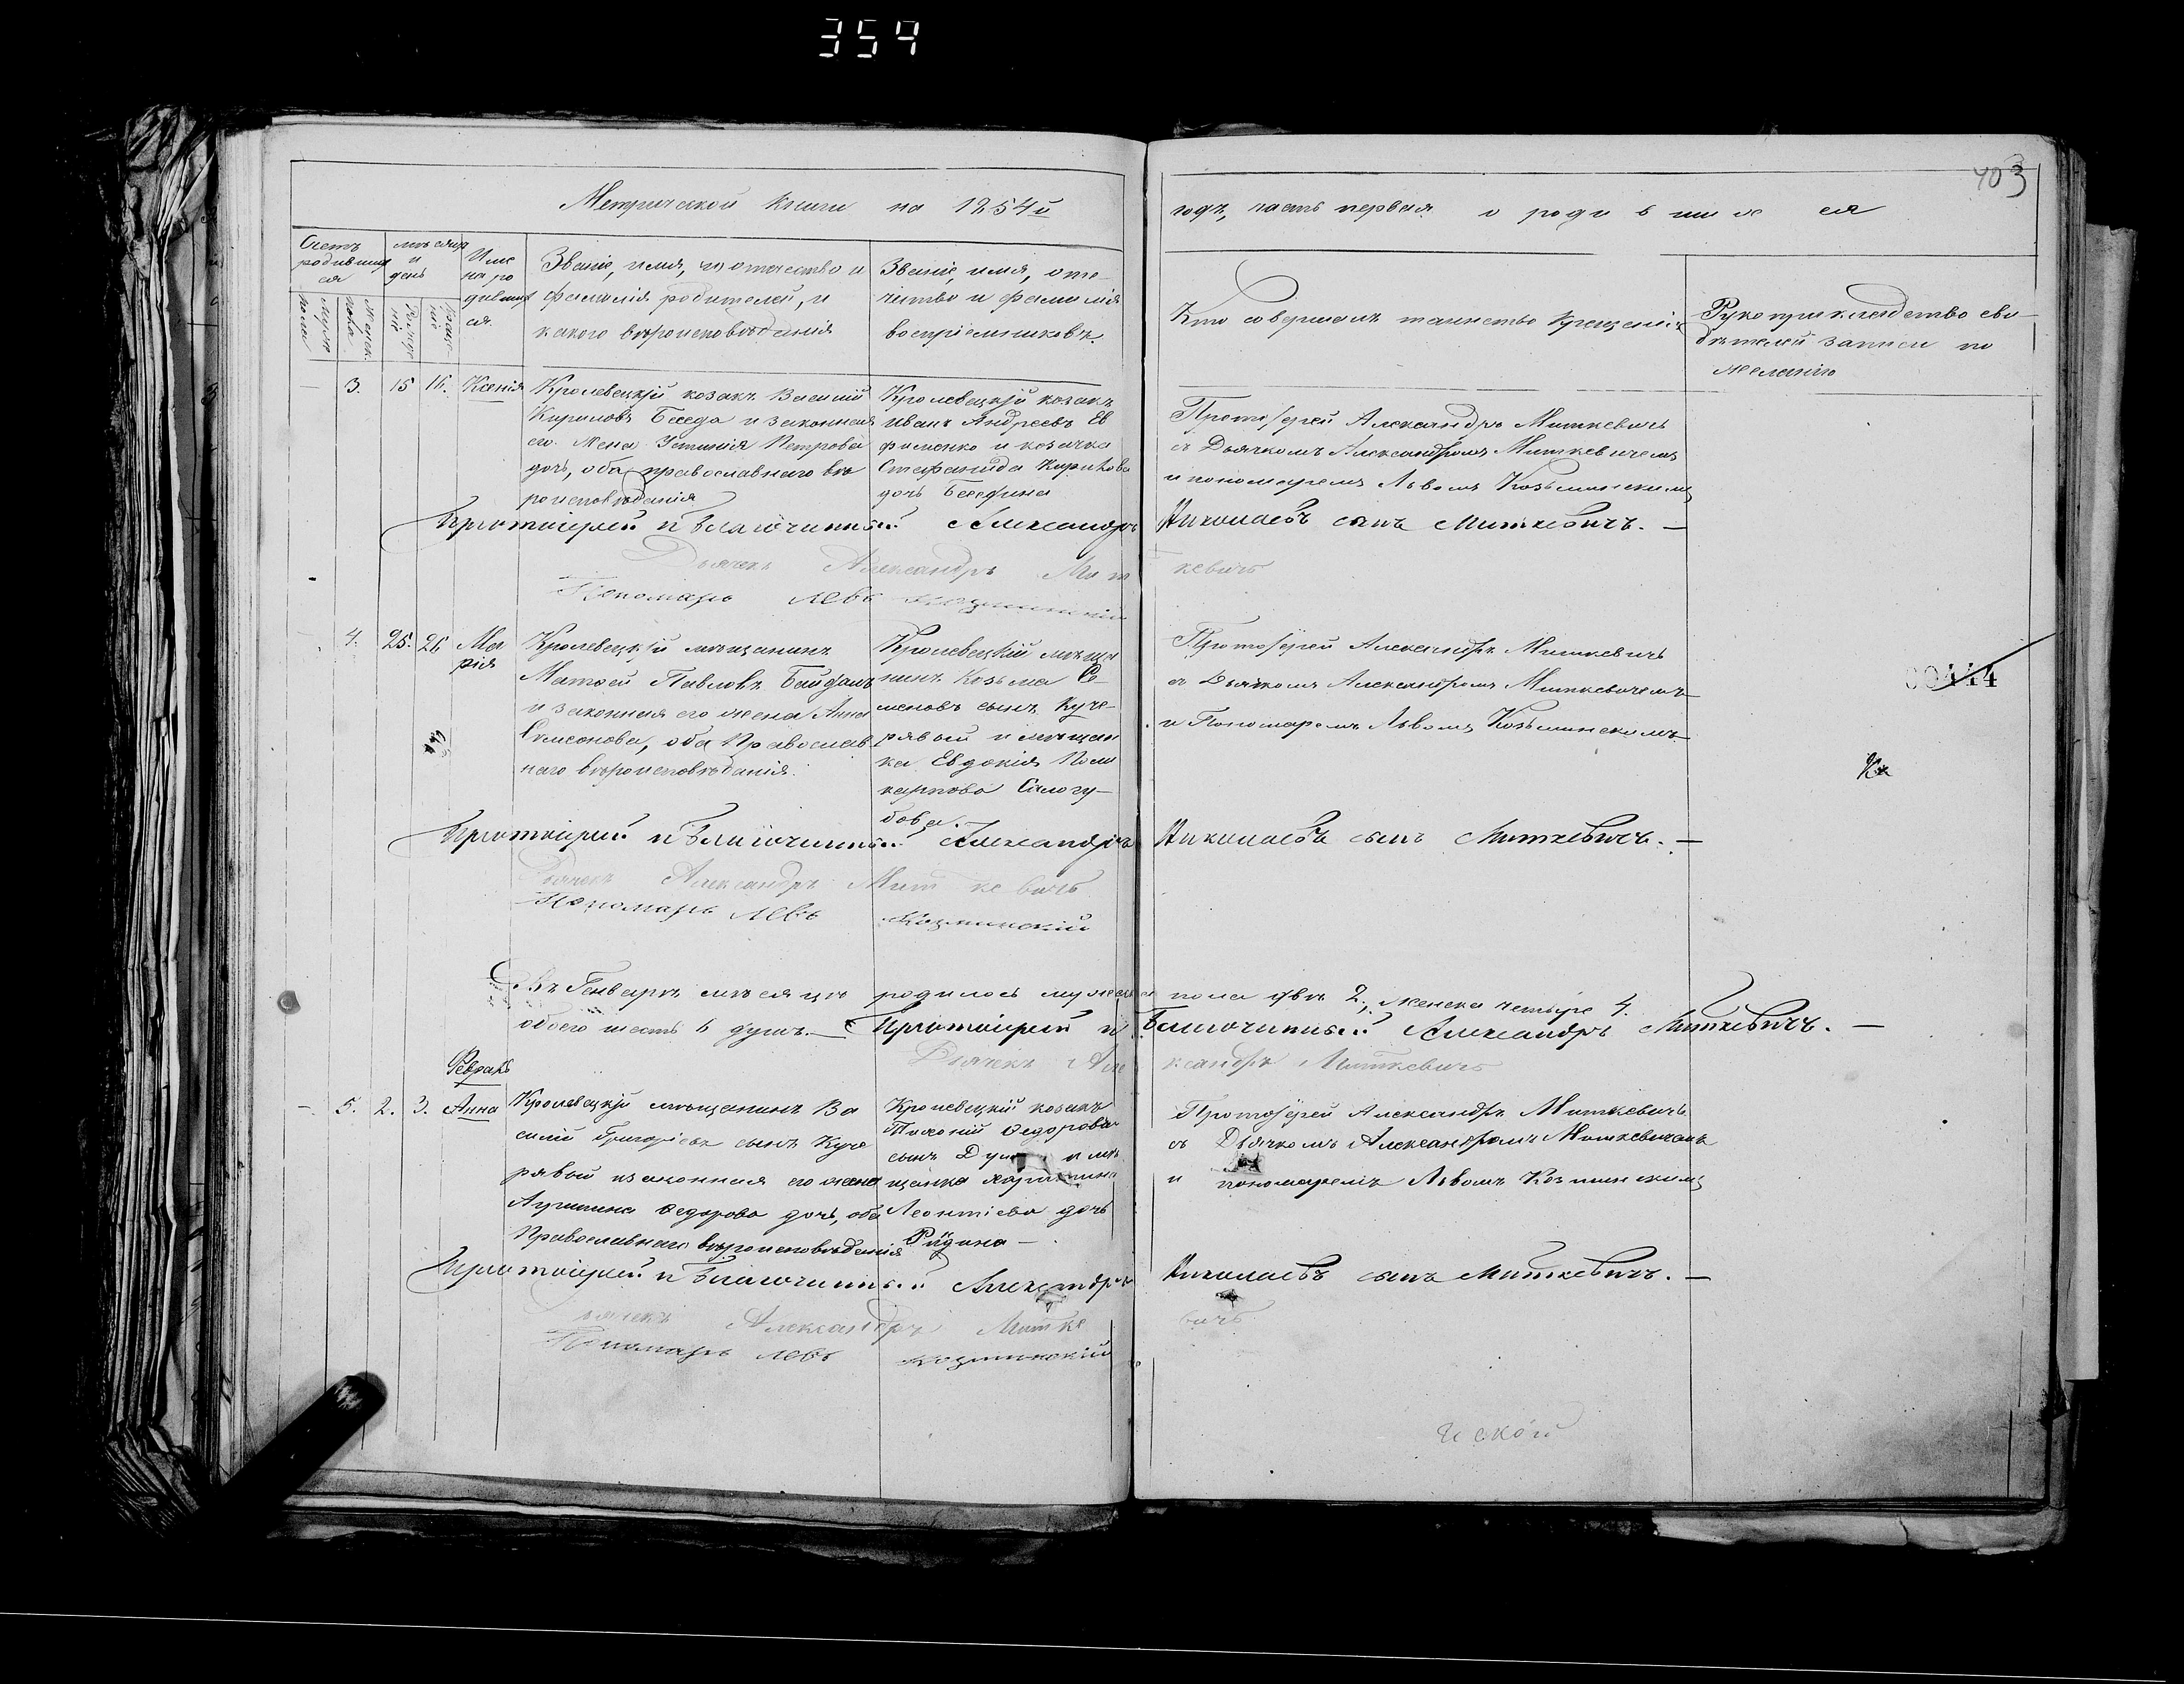 354
403
Метрической книги на 1854й годъ, часть первая о родившихся
Счетъ родившихся
мѣсяцъ и день
Имена родившихся.
Званіе, имя, и отчество и
фамилія родителей, и
какого вѣроисповѣданія
Званіе, имя, оте-
чество и фамилія
воспріемниковъ.
Кто совершалъ таинство крещенія
Рукоприкладство сви-
дѣтелей записи по
желанію
3. 15 16. Ксенія
Кролевецкій козакъ Василій
Кириловъ Беседа и законная
его Жена Устинія Петрова
дочь, оба православнаго вѣ
роисповѣданія
Кролевецкій козакъ
Иванъ Андреевъ Ев
фименко и козачка
Стефанида Кирилова
дочь
Протоіерей Александръ Миткевичъ
съ Дьячкомъ Александромъ Миткевичемъ
и пономаремъ Львомъ Козьминскимъ
Протоіерей и Благочинный Александръ Николаевъ сынъ Миткевичъ. —
Дьячекъ Александръ Миткевичъ
Пономарь Левъ Козминскій
4. 25. 26 Ма
рія
Кролевецкій мѣщанинъ
Матвей Павловъ
и законная его жена Анна
Симеонова, оба Православ
наго вѣроисповѣданія.
Кролевецкій мѣща
нинъ Козьма Се-
меновъ сынъ Куче-
рявый и мѣщан
ка Евдокія Поли
карпова Салогу-
бова.
Протоіерей Александръ Миткевичъ
съ Дьячкомъ Александромъ Миткевичемъ
и Пономаремъ Львомъ Козьминскимъ
00444
Протоіерей и Благочинный Александръ Николаевъ сынъ Миткевичъ. —
Дьячекъ Александръ Миткевичъ
Пономарь Левъ Козминскій
Въ Генварѣ мѣсяцѣ родилось мужеска пола двѣ 2, женска четыре 4.
обоего шесть 6 душъ. — Протоіерей и Благочинный Александръ Миткевичъ. —
Дьячекъ Александръ Миткевичъ
Февраль
5. 2. 3. Анна
Кролевецкій мѣщанинъ Ва
силій Григоріевъ сынъ Куче
рявый и законная его жена
Ѳедорова дочь, оба
Православнаго вѣроисповѣданія
Кролевецкій козакъ
Ѳедоровъ
сынъ и мѣ
щанка
Леонтіева дочь
Протоіерей Александръ Миткевичъ
съ Дьячкомъ Александромъ Миткевичемъ
и пономаремъ Львомъ Козминскимъ
Протоіерей и Благочинный Александръ Николаевъ сынъ Миткевичъ. —
Дьячекъ Александръ Миткевичъ
Пономарь Левъ Козминскій